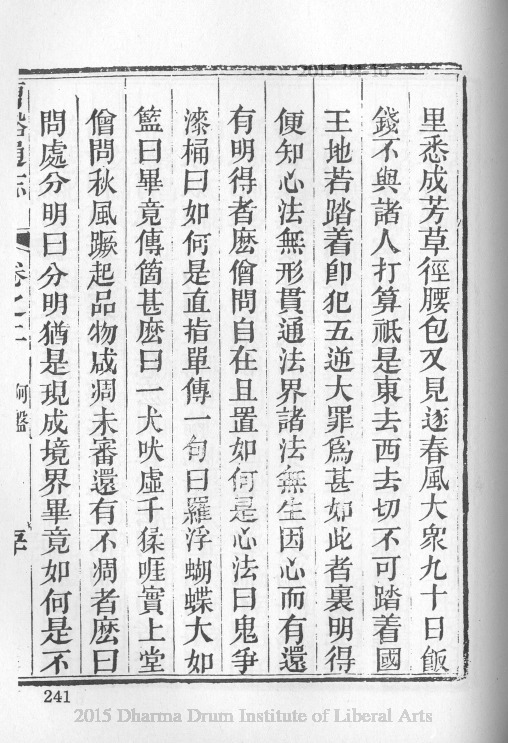 里悉成芳草徑腰包又見逐春風大衆九十日飯
錢不與諸人打算祇是東去西去切不可踏着國
王地若踏着卽犯五逆大罪爲甚如此者裏明得
便知心法無形貫通法界諸法無生因心而有還
有明得者麽僧問自在且置如何是心法曰鬼爭
漆桶曰如何是直指單傳一句曰羅浮蝴蝶大如
籃曰畢竟傳箇甚麽曰一犬吠虛千猱啀實上堂
僧問秋風蹶起品物咸凋未審還有不凋者麽曰
問處分明曰分明猶是現成境界畢竟如何是不
卷之二
241
2015 Dharma Drum Institute of Liberal Arts